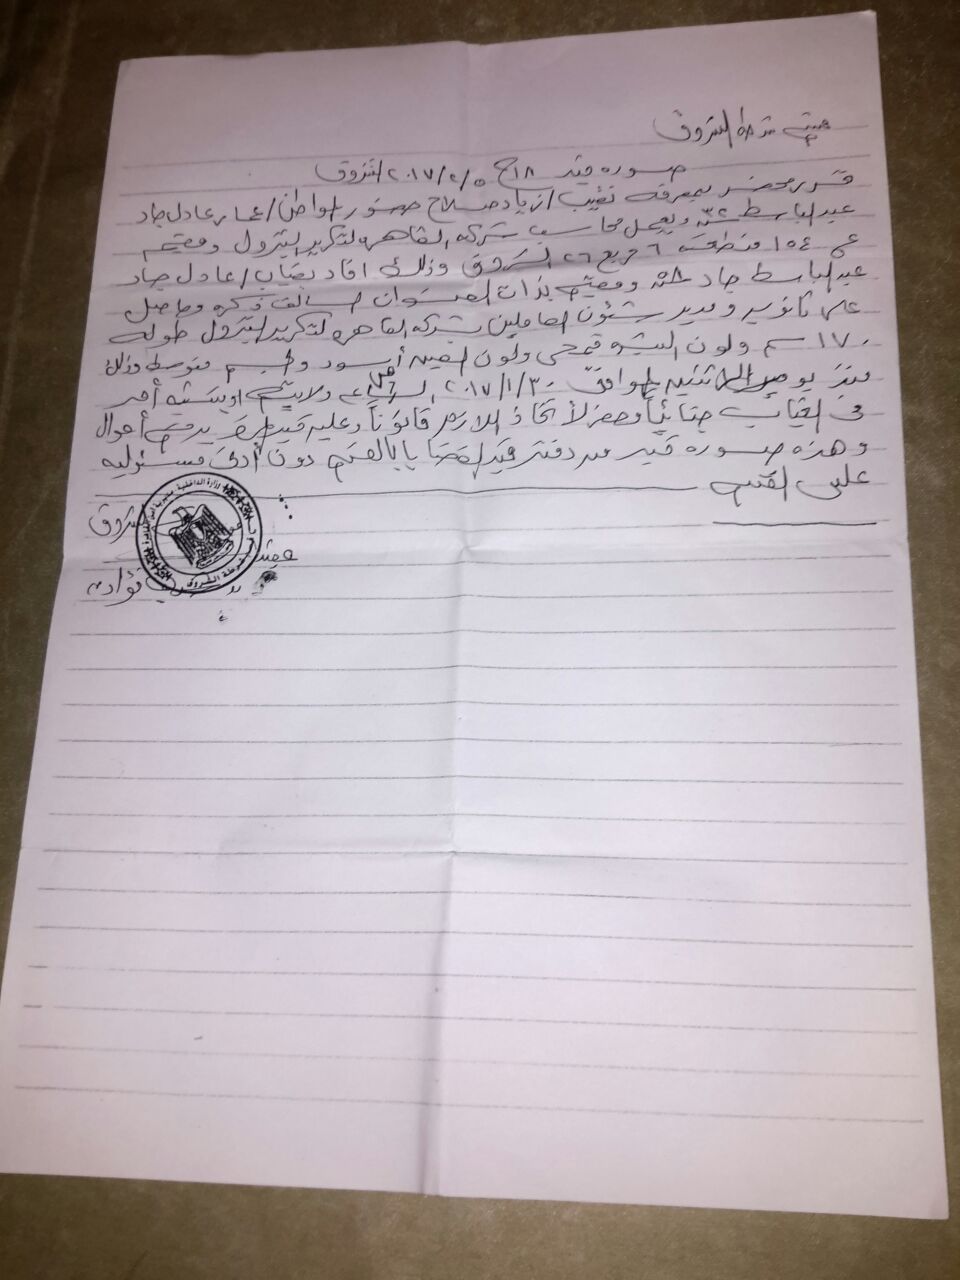 قسم شرطة الشروق
صورة قيد ١٨ ح ٢٠١٧/٢/٥ الشروق
تحرر محضر بمعرفة نقيب/ زياد صلاح حضور المواطن/ عمار عادل جاد
عبد الباسط ويعمل محاسب بشركة القاهرة لتكرير البترول ومقيم
١٥٤ منطقة ٦ مربع ٢٦ الشروق وذلك افاد بغياب/ عادل جاد
عبد الباسط جاد ومقيم بذات العنوان السالف ذكره وحاصل
على ثانوية ومدير شئون العاملين بشركة القاهرة لتكرير البترول طوله
١٧٠ سم ولون البشرة قمحى ولون العين أسود والجسم متوسط وذلك
منذ يوم الاثنين الموافق ٢٠١٧/١/٣٠ ولا يتهم او يشتبه أحد
فى الغياب جنائياً لأتخاذ اللازم قانوناً وعليه قيد برقم أحوال
وهذه صورة قيد من دفتر قيد القضايا بالقسم دون أدنى مسئولية
على القسم
الشروق
وزارة الداخلية